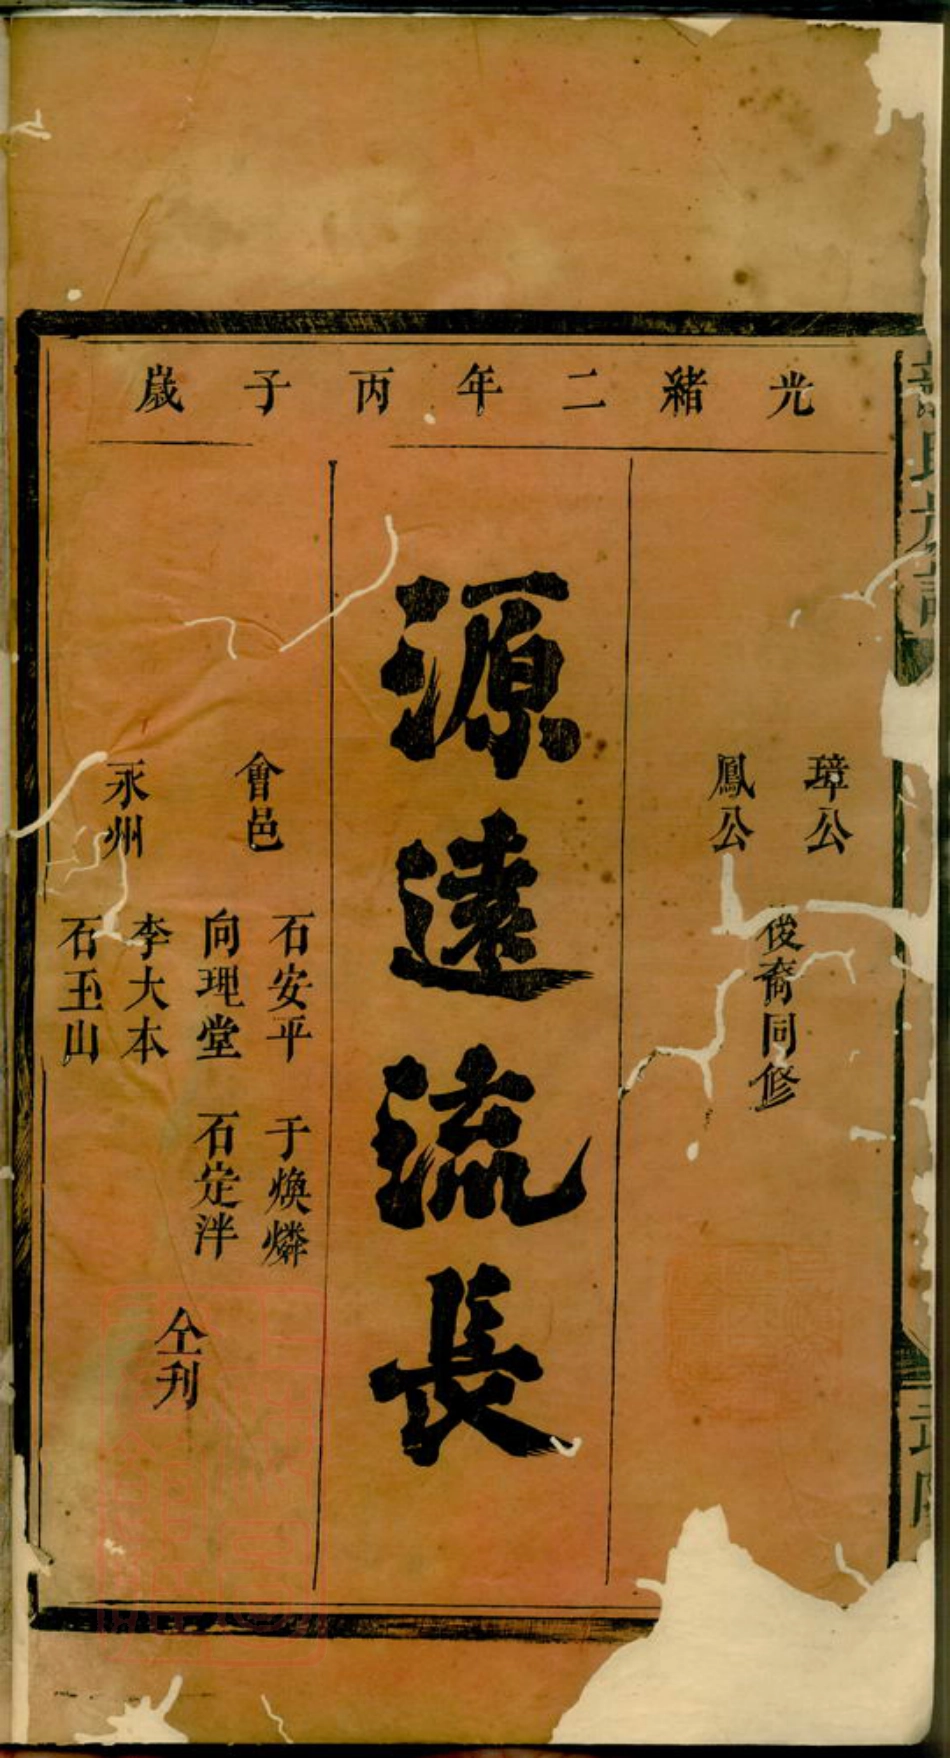 光緒二年丙子歲
璋公
鳳公
俊裔同修
源遠流長
會邑
石安平 于煥燐
向理堂 石定泮
永州
李大本
石玉山
仝刋